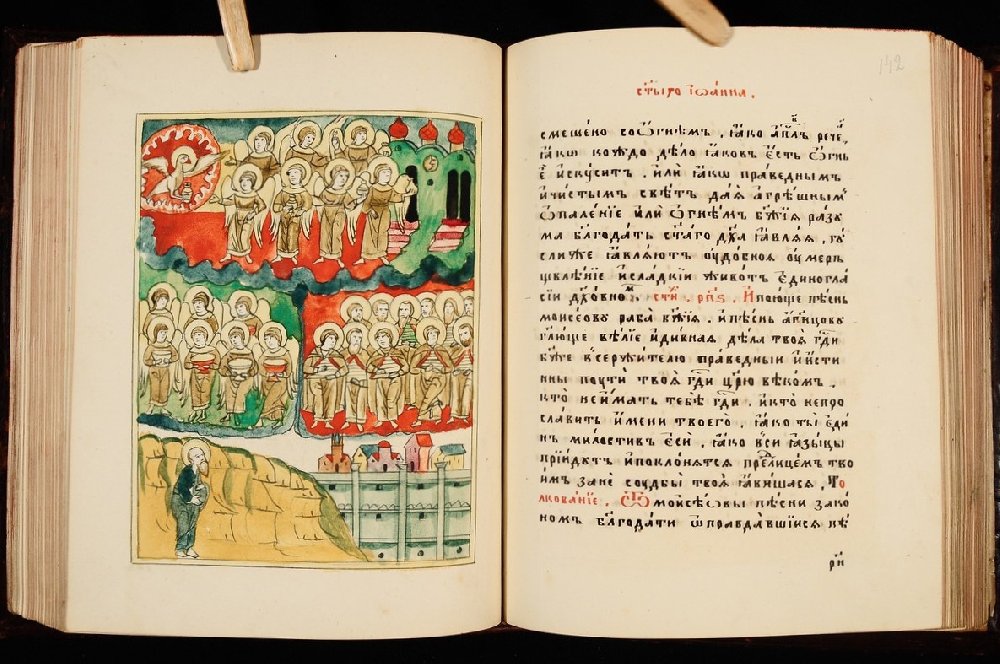 142
ст҃ы́го їѡа́нна.
смешено со ѻ҆гне́мъ, ꙗ҆́ко а҆пⷭ҇лъ речѐ,
ꙗ҆́кѡ коꙗ́ждо дѣ́ло ꙗ҆ко́въ є҆́сть ѻ҆́гнь
є҆̀ и҆ску́ситъ. и҆лѝ ꙗ҆́кѡ пра́веднымъ
и҆ чи́стымъ свѣ́тъ даѧ̀ а҆ грѣ́шнымъ
ѡ҆пале́нїе и҆лѝ ѻ҆гне́мъ бж҃їѧ ра́зу
ма благода́ть ст҃а́го дх҃а ꙗ҆влѧ́ѧ, гу́
сли же ꙗ҆влѧ́ютъ оу҆до́бноѧ оу҆мер
щвле́нїе и҆ сла́дкїи живо́тъ є҆диногла́
сїи дх҃о́вном. сти. рп҃ѕ. И҆ пою́ще пѣ́снь
моисе́ову раба̀ бж҃їѧ. и҆ пѣ́снь а҆́гнцову
гл҃юще ве́лїе и҆ ди́внаѧ дѣла̀ твоѧ̀ гдⷭ҇и
бж҃е всердержи́телю пра́ведныи и҆ и҆́сти
нны пꙋтѝ твоѧ̀ гдⷭ҇и цр҃ю вѣ́комъ.
кто̀ не и҆́мать тебѐ гдⷭ҇и. и҆ кто̀ не про
сла́витъ и҆́мени твоего̀. ꙗ҆́ко ты̀ є҆ди́
нъ ми́лостивъ є҆сѝ. ꙗ҆́ко всѝ ꙗ҆зы́цы
прїи́дꙋтъ и҆ покло́нѧтсѧ пре́д лице́мъ тво
и҆́мъ занѐ сꙋдбы̀ твоѧ̀ ꙗ҆ви́шасѧ. То
лкова́нїе. Ѿ моисе́ѡвы пѣ́сни зако́
номъ благода́ти ѡ҆правда́вшїисѧ бг҃
рн҃